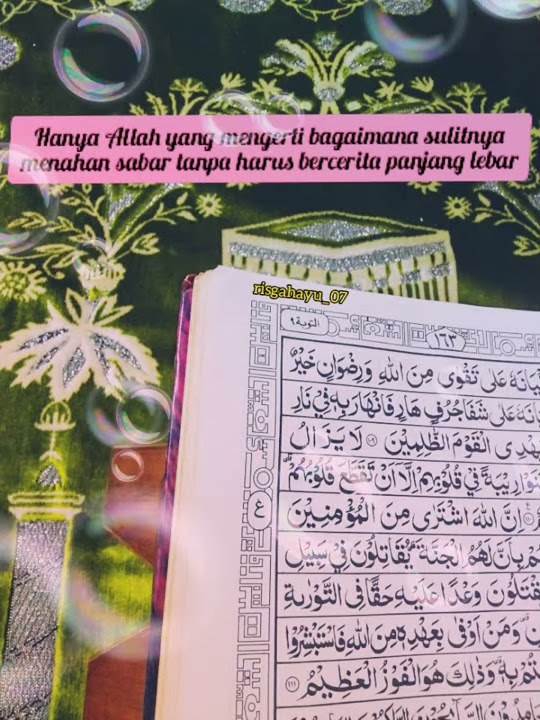 Hanya Allah yang mengerti bagaimana sulitnya
menahan sabar tanpa harus bercerita panjang lebar
risgahayu_07
التوبة ٩
١٦٣
عَلٰى تَقْوٰى مِنَ اللّٰهِ وَرِضْوَانٍ خَيْرٌ
عَلٰى شَفَا جُرُفٍ هَارٍ فَانْهَارَ بِهٖ فِيْ نَارِ
الْقَوْمَ الظّٰلِمِيْنَ ١٠٩ لَا يَزَالُ
رِيْبَةً فِيْ قُلُوْبِهِمْ اِلَّآ اَنْ تَقَطَّعَ قُلُوْبُهُمْ
اِنَّ اللّٰهَ اشْتَرٰى مِنَ الْمُؤْمِنِيْنَ
بِاَنَّ لَهُمُ الْجَنَّةَ يُقَاتِلُوْنَ فِيْ سَبِيْلِ
وَعْدًا عَلَيْهِ حَقًّا فِى التَّوْرٰىةِ
وَمَنْ اَوْفٰى بِعَهْدِهٖ مِنَ اللّٰهِ فَاسْتَبْشِرُوْا
بِهٖ وَذٰلِكَ هُوَ الْفَوْزُ الْعَظِيْمُ ١١١
ع